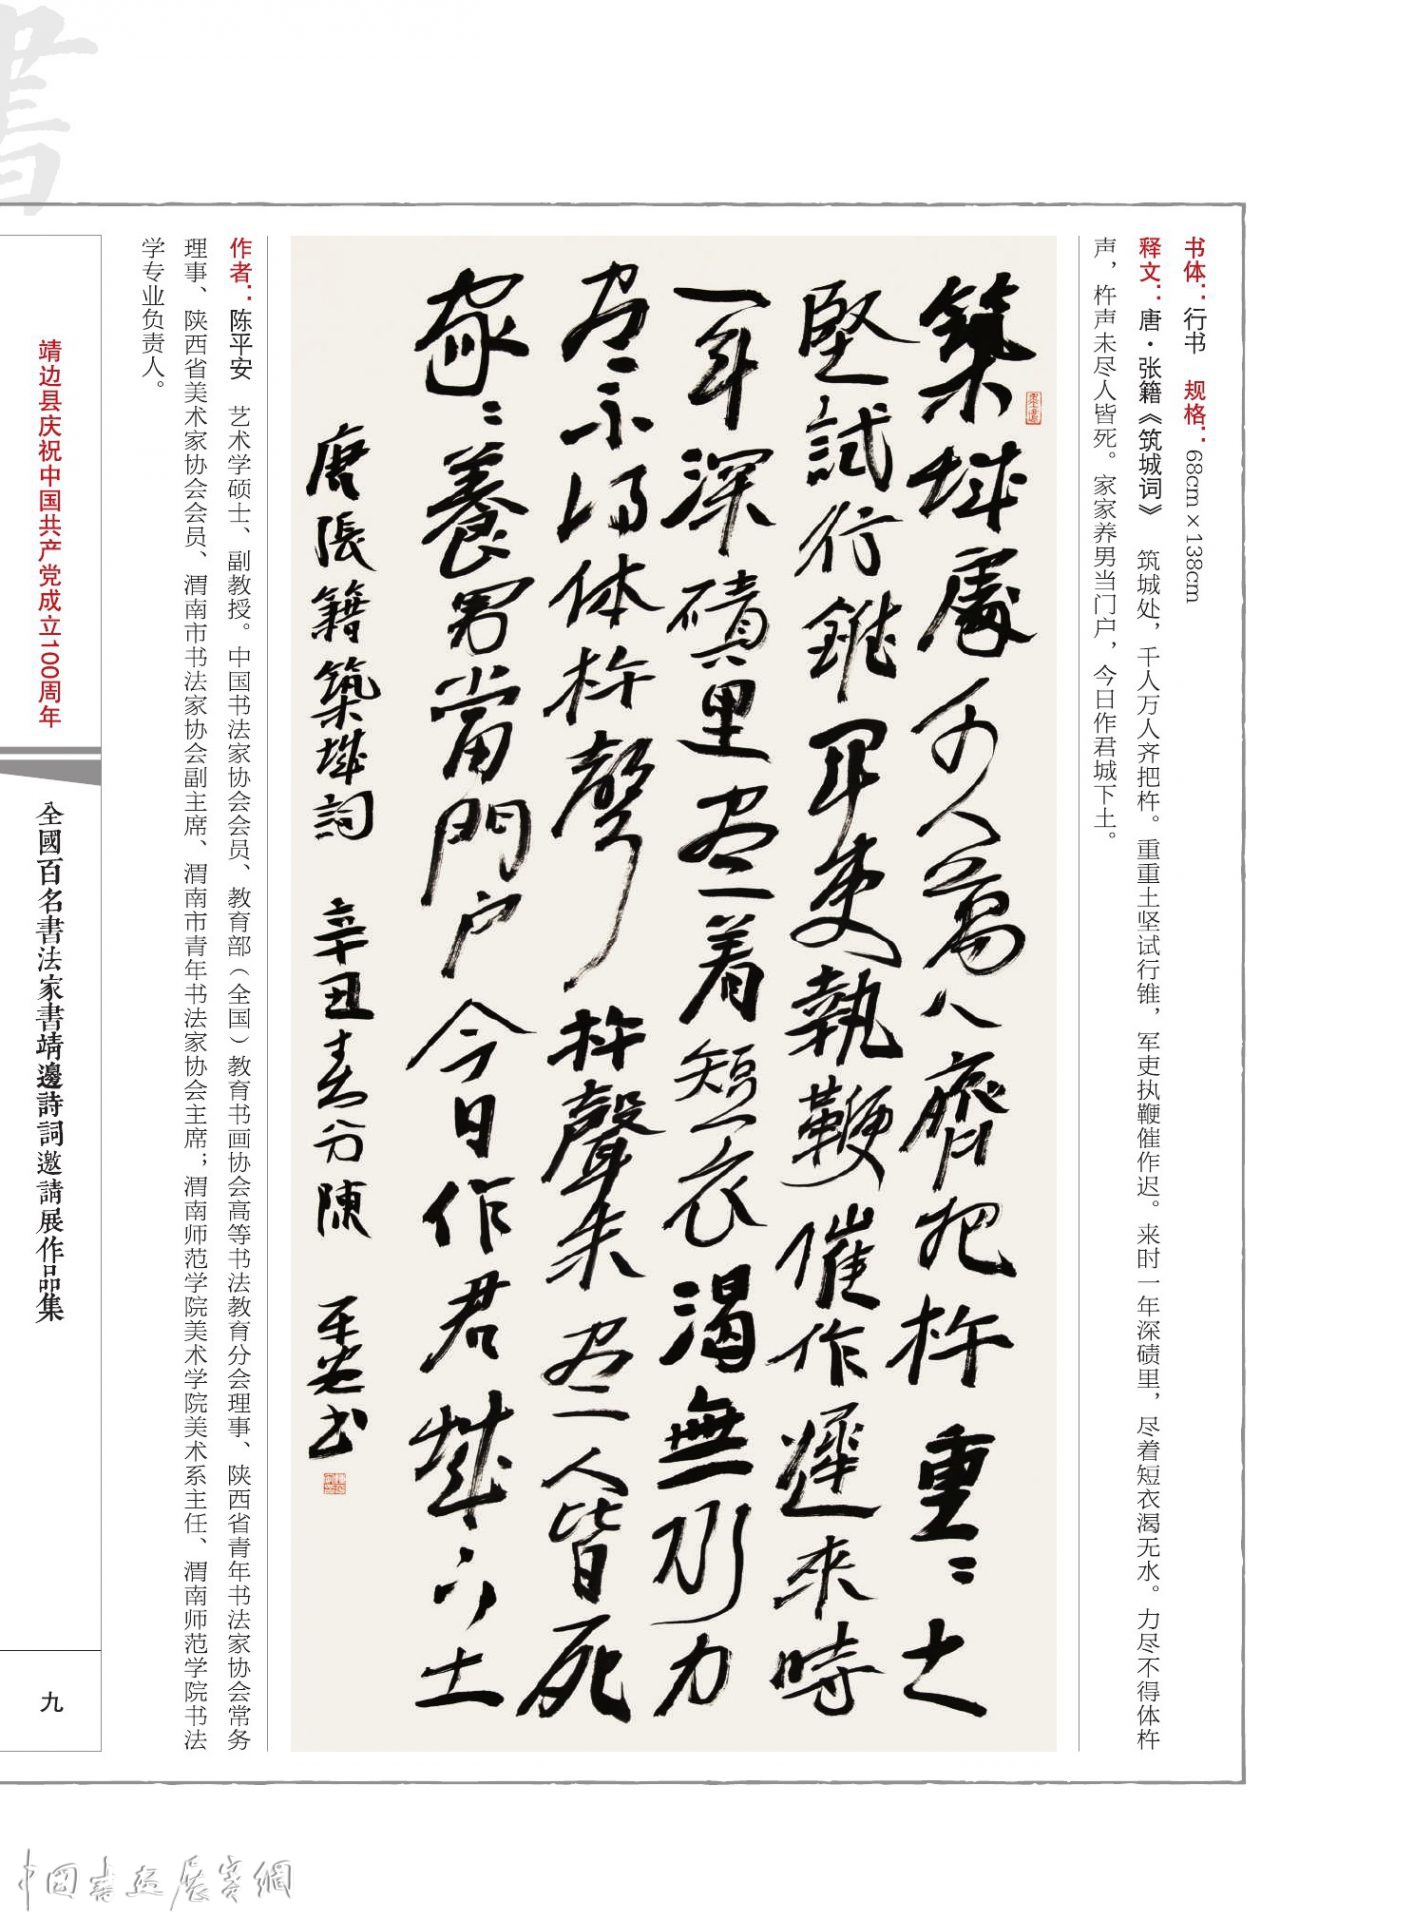 書
书体：行书　规格：68cm×138cm
释文：唐·张籍《筑城词》　筑城处，千人万人齐把杵。重重土坚试行锥，军吏执鞭催作迟。来时一年深碛里，尽着短衣渴无水。力尽不得体杵
声，杵声未尽人皆死。家家养男当门户，今日作君城下土。
築城處千人萬人齊把杵重〻土
堅試行錐軍吏執鞭催作遲来時
一年深磧里尽着短衣渴無水力
尽不得体杵聲杵聲未尽人皆死
家〻養男當門户今日作君城下土
唐張籍築城詞　辛丑春分陳平安书
作者：陈平安　艺术学硕士、副教授。中国书法家协会会员、教育部（全国）教育书画协会高等书法教育分会理事、陕西省青年书法家协会常务
理事、陕西省美术家协会会员、渭南市书法家协会副主席、渭南市青年书法家协会主席；渭南师范学院美术学院美术系主任、渭南师范学院书法
学专业负责人。
靖边县庆祝中国共产党成立100周年
全國百名書法家書靖邊詩詞邀請展作品集
九
中國書画展賽網